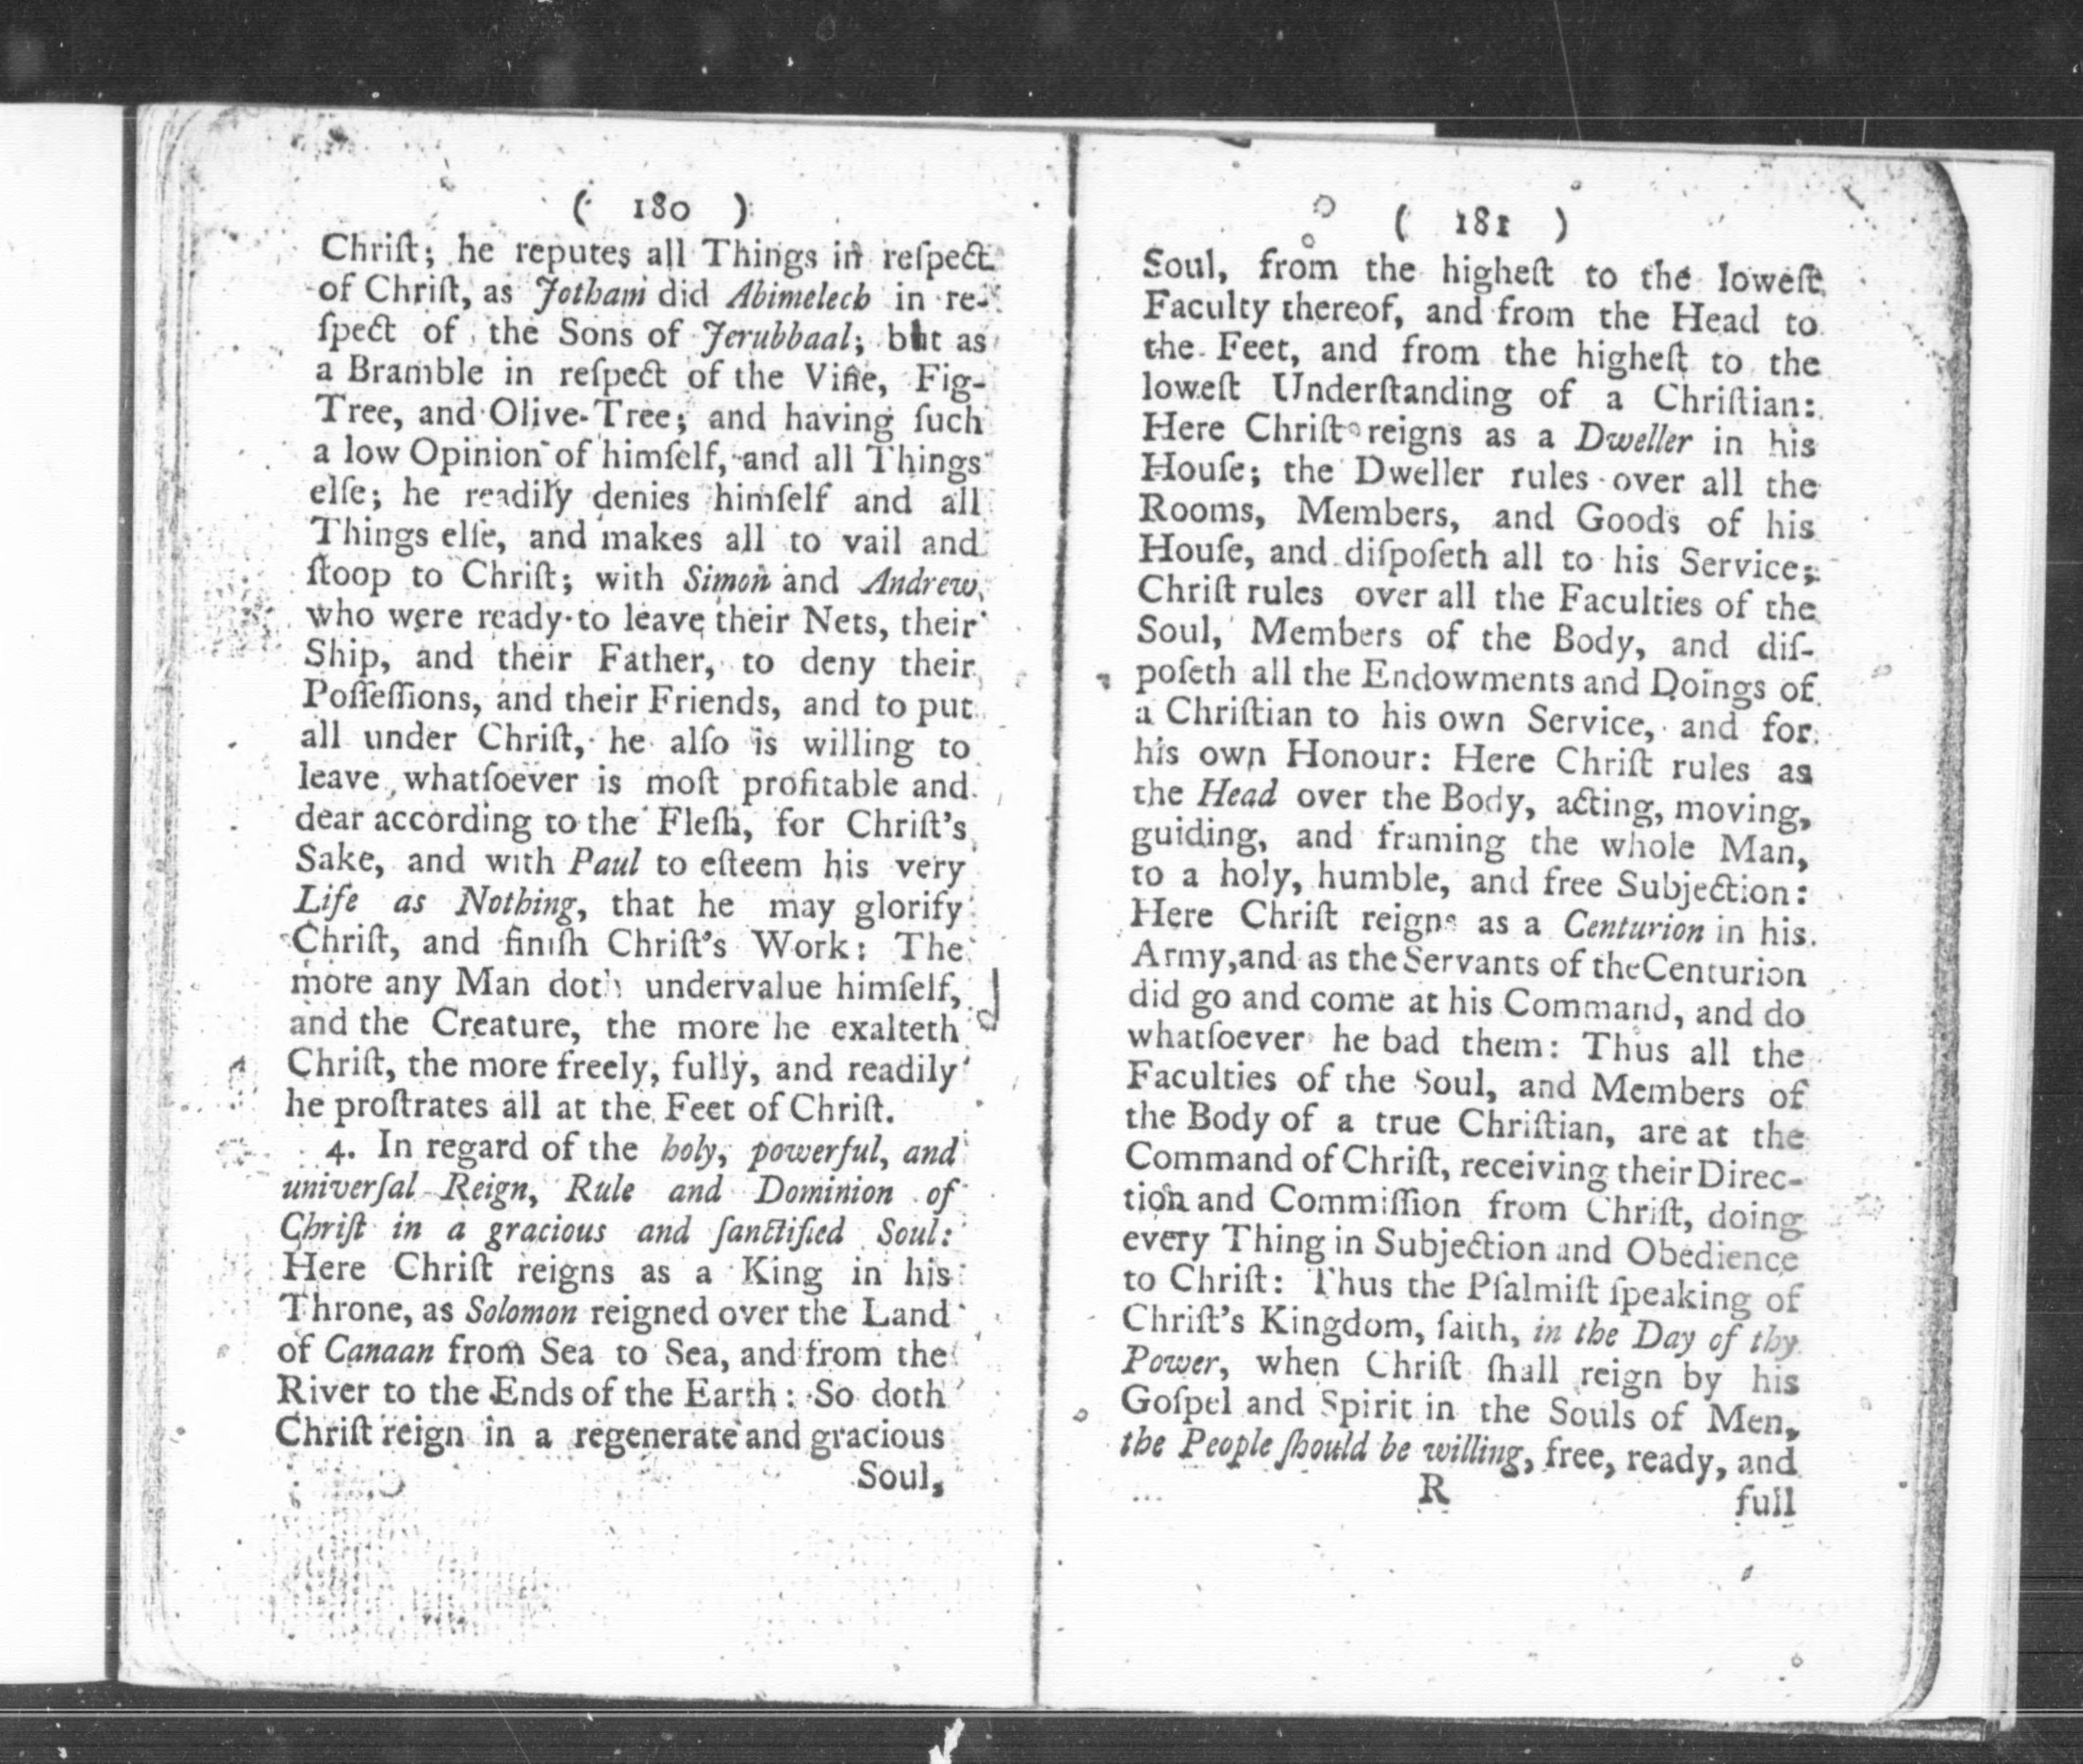 ( 180 )
Chriſt; he reputes all Things in reſpect
of Chriſt, as Jotham did Abimelech in re-
ſpect of the Sons of Jerubbaal; but as
a Bramble in reſpect of the Vine, Fig-
Tree, and Olive-Tree; and having ſuch
a low Opinion of himſelf, and all Things
elſe; he readily denies himſelf and all
Things elſe, and makes all to vail and
ſtoop to Chriſt; with Simon and Andrew,
who were ready to leave their Nets, their
Ship, and their Father, to deny their
Poſſeſſions, and their Friends, and to put
all under Chriſt, he alſo is willing to
leave whatſoever is moſt profitable and
dear according to the Fleſh, for Chriſt's
Sake, and with Paul to eſteem his very
Life as Nothing, that he may glorify
Chriſt, and finiſh Chriſt's Work: The
more any Man doth undervalue himſelf,
and the Creature, the more he exalteth
Chriſt, the more freely, fully, and readily
he proſtrates all at the Feet of Chriſt.
4. In regard of the holy, powerful, and
univerſal Reign, Rule and Dominion of
Chriſt in a gracious and ſanctified Soul:
Here Chriſt reigns as a King in his
Throne, as Solomon reigned over the Land
of Canaan from Sea to Sea, and from the
River to the Ends of the Earth: So doth
Chriſt reign in a regenerate and gracious
Soul,
( 181 )
Soul, from the higheſt to the loweſt
Faculty thereof, and from the Head to
the Feet, and from the higheſt to the
loweſt Underſtanding of a Chriſtian:
Here Chriſt reigns as a Dweller in his
Houſe; the Dweller rules over all the
Rooms, Members, and Goods of his
Houſe, and diſpoſeth all to his Service;
Chriſt rules over all the Faculties of the
Soul, Members of the Body, and diſ-
poſeth all the Endowments and Doings of
a Chriſtian to his own Service, and for
his own Honour: Here Chriſt rules as
the Head over the Body, acting, moving,
guiding, and framing the whole Man,
to a holy, humble, and free Subjection:
Here Chriſt reigns as a Centurion in his
Army, and as the Servants of the Centurion
did go and come at his Command, and do
whatſoever he bad them: Thus all the
Faculties of the Soul, and Members of
the Body of a true Chriſtian, are at the
Command of Chriſt, receiving their Direc-
tion and Commiſſion from Chriſt, doing
every Thing in Subjection and Obedience
to Chriſt: Thus the Pſalmiſt ſpeaking of
Chriſt's Kingdom, ſaith, in the Day of thy
Power, when Chriſt ſhall reign by his
Goſpel and Spirit in the Souls of Men,
the People ſhould be willing, free, ready, and
R full